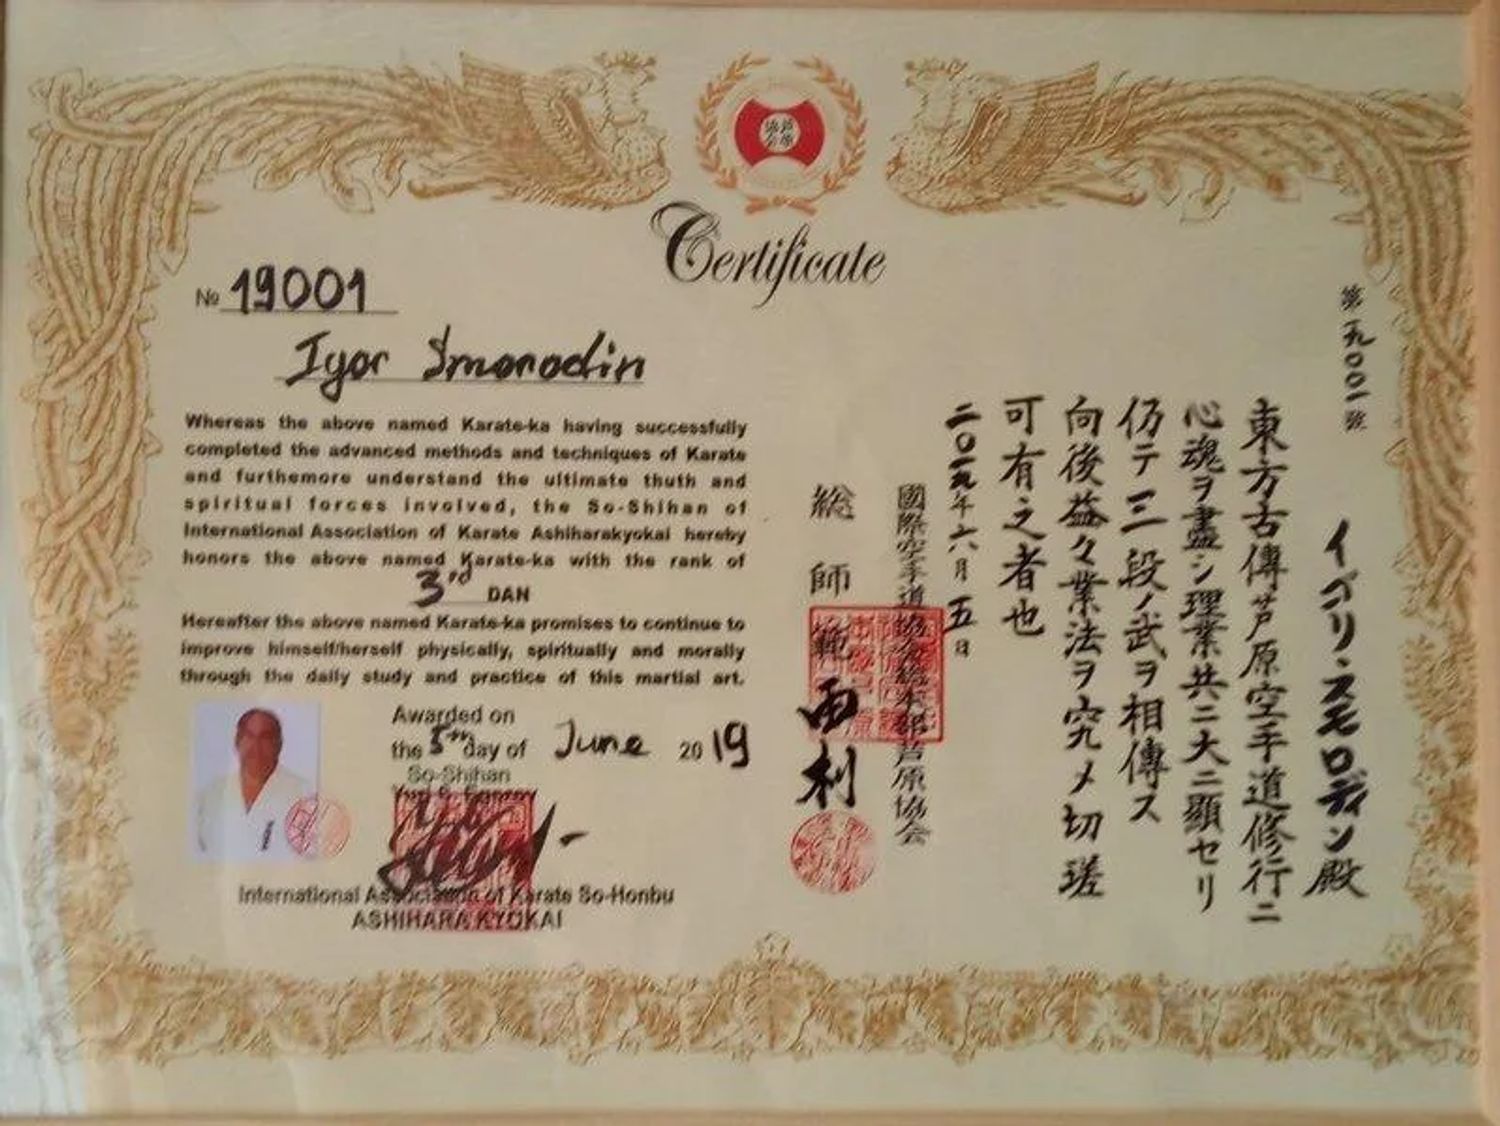 Certificate
№ 19001
Igor Smorodin
Whereas the above named Karate-ka having successfully
completed the advanced methods and techniques of Karate
and furthermore understand the ultimate thuth and
spiritual forces involved, the So-Shihan of
International Association of Karate Ashiharakyokai hereby
honors the above named Karate-ka with the rank of
3rd DAN
Hereafter the above named Karate-ka promises to continue to
improve himself/herself physically, spiritually and morally
through the daily study and practice of this martial art.
Awarded on
the 5th day of June 2019
So-Shihan
International Association of Karate So-Honbu
ASHIHARA KYOKAI
第一九〇〇一號
スモロディン殿
東方古傳芦原空手道修行ニ
心魂ヲ盡シ理業共ニ大ニ顕セリ
仍テ三段ノ武ヲ相傳ス
向後益々業法ヲ究メ切瑳
可有之者也
二〇一九年六月五日
國際空手道協会総本部芦原協会
総師範